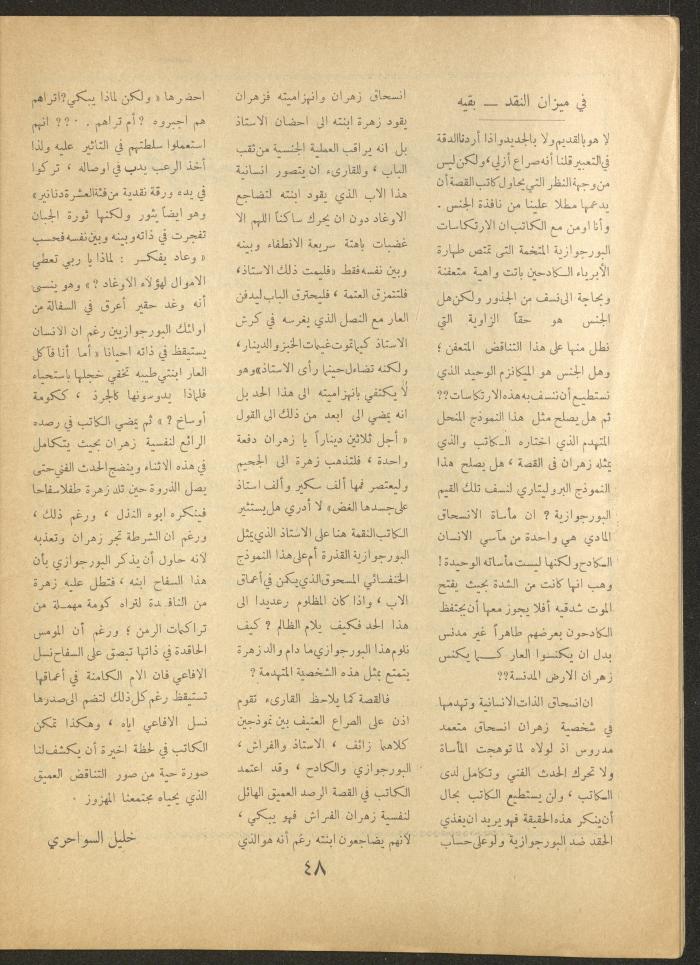 في ميزان النقد — بقيه
لا هو بالقديم ولا بالجديد واذا أردنا الدقة
في التعبير قلنا أنه صراع أزلي، ولكن ليس
من وجهة النظر التي يحاول كاتب القصة أن
يدعمها مطلا علينا من نافذة الجنس .
وأنا اومن مع الكاتب ان الارتكاسات
البورجوازية المتخمة التى تمتص طهارة
الأبرياء الكادحين باتت واهية متعفنة
وبحاجة الى نسف من الجذور ولكن هل
الجنس هو حقاً الزاوية التي
نطل منها على هذا التناقض المتعفن ؛
وهل الجنس هو الميكانزم الوحيد الذي
نستطيع أن ننسف به هذه الارتكاسات ؟؟
ثم هل يصلح مثل هذا النموذج المنحل
المتهدم الذي اختاره الكاتب والذي
يمثله زهران فى القصة ، هل يصلح هذا
النموذج البروليتاري لنسف تلك القيم
البورجوازية ? ان مأساة الانسحاق
المادي هي واحدة من مآسي الانسان
الكادح ولكنها ليست مأساته الوحيدة !
وهب انها كانت من الشدة بحيث يفتح
الموت شدقيه أفلا يجوز معها أن يحتفظ
الكادحون بعرضهم طاهراً غير مدنس
بدل ان يكنسوا العار كما يكنس
زهران الارض المدنسة ??
ان انسحاق الذات الانسانية وتهدمها
في شخصية زهران انسحاق متعمد
مدروس اذ لولاه لما توهجت المأساة
ولا تحرك الحدث الفني وتكامل لدى
الكاتب ، ولن يستطيع الكاتب بحال
أن ينكر هذه الحقيقة فهو يريد ان يغذي
الحقد ضد البورجوازية ولو على حساب
انسحاق زهران وانهزاميته فزهران
يقود زهرة ابنته الى احضان الاستاذ
بل انه يراقب العملية الجنسية من ثقب
الباب ، وللقارىء ان يتصور انسانية
هذا الاب الذي يقود ابنته لتضاجع
الاوغاد دون ان يحرك ساكناً اللهم الا
غضبات باهتة سريعة الانطفاء وبينه
وبين نفسه فقط « فليمت ذلك الاستاذ،
فلتتمزق العتمة ، فليحترق الباب ليدفن
العار مع النصل الذي يغرسه في كرش
الاستاذ كيما تموت غيمات الخبز والدينار،
ولكنه تضاءل حينما رأى الاستاذ » وهو
لا يكتفي بانهزاميته الى هذا الحد بل
انه يمضي الى ابعد من ذلك الى القول
« أجل ثلاثين ديناراً يا زهران دفعة
واحدة ، فلتذهب زهرة الى الجحيم
وليعتصر فمها ألف سكير وألف استاذ
على جسدها الغض » لا أدري هل يستثير
الكاتب النقمة هنا على الاستاذ الذي يمثل
البورجوازية القذرة أم على هذا النموذج
الخنفسائي المسحوق الذي يكن في أعماق
الاب ، واذا كان المظلوم رعديدا الى
هذا الحد فكيف يلام الظالم ? كيف
نلوم هذا البورجوازي ما دام والد زهرة
يتمتع بمثل هذه الشخصية المتهدمة ?
فالقصة كما يلاحظ القارىء تقوم
اذن على الصراع العنيف بين نموذجين
كلاهما زائف ، الاستاذ والفراش ،
البورجوازي والكادح ، وقد اعتمد
الكاتب في القصة الرصد العميق الهائل
لنفسية زهران الفراش فهو يبكي ،
لأنهم يضاجعون ابنته رغم أنه هو الذي
احضرها « ولكن لماذا يبكي ? اتراهم
هم اجبروه ? أم تراهم . . ?? انهم
استعملوا سلطتهم في التأثير عليه ولذا
أخذ الرعب يدب في اوصاله ، تركوا
في يده ورقة نقدية من فئة العشرة دنانير »
وهو ايضاً يثور ولكنها ثورة الجبان
تفجرت في ذاته وبينه وبين نفسه فحسب
« وعاد يفكر : لماذا يا ربي تعطي
الاموال لهؤلاء الاوغاد ? » وهو ينسى
أنه وغد حقير أعرق في السفالة من
اولئك البورجوازيين رغم ان الانسان
يستيقظ في ذاته احيانا « أما أنا فآكل
العار ابنتي طيبه تخفي خجلها باستحياء
فلماذا يدوسونها كالجرذ ، ككومة
أوساخ ? » ثم يمضي الكاتب في رصده
الرائع لنفسية زهران بحيث يتكامل
في هذه الاثناء وينضج الحدث الفني حتى
يصل الذروة حين تلد زهرة طفلا سفاحا
فينكره ابوه النذل ، ورغم ذلك ،
ورغم ان الشرطة تجر زهران وتعذبه
لأنه حاول أن يذكر البورجوازي بأن
هذا السفاح ابنه ، فتطل عليه زهرة
من النافذة لتراه كومة مهملة من
تراكمات الزمن ؛ ورغم أن المومس
الحاقدة في ذاتها تبصق على السفاح نسل
الافاعي فان الام الكامنة في أعماقها
تستيقظ رغم كل ذلك لتضم الى صدرها
نسل الافاعي اياه ، وهكذا تمكن
الكاتب في لحظة اخيرة أن يكشف لنا
صورة حية من صور التناقض العميق
الذي يحياه مجتمعنا المهزوز .
خليل السواحري
٤٨